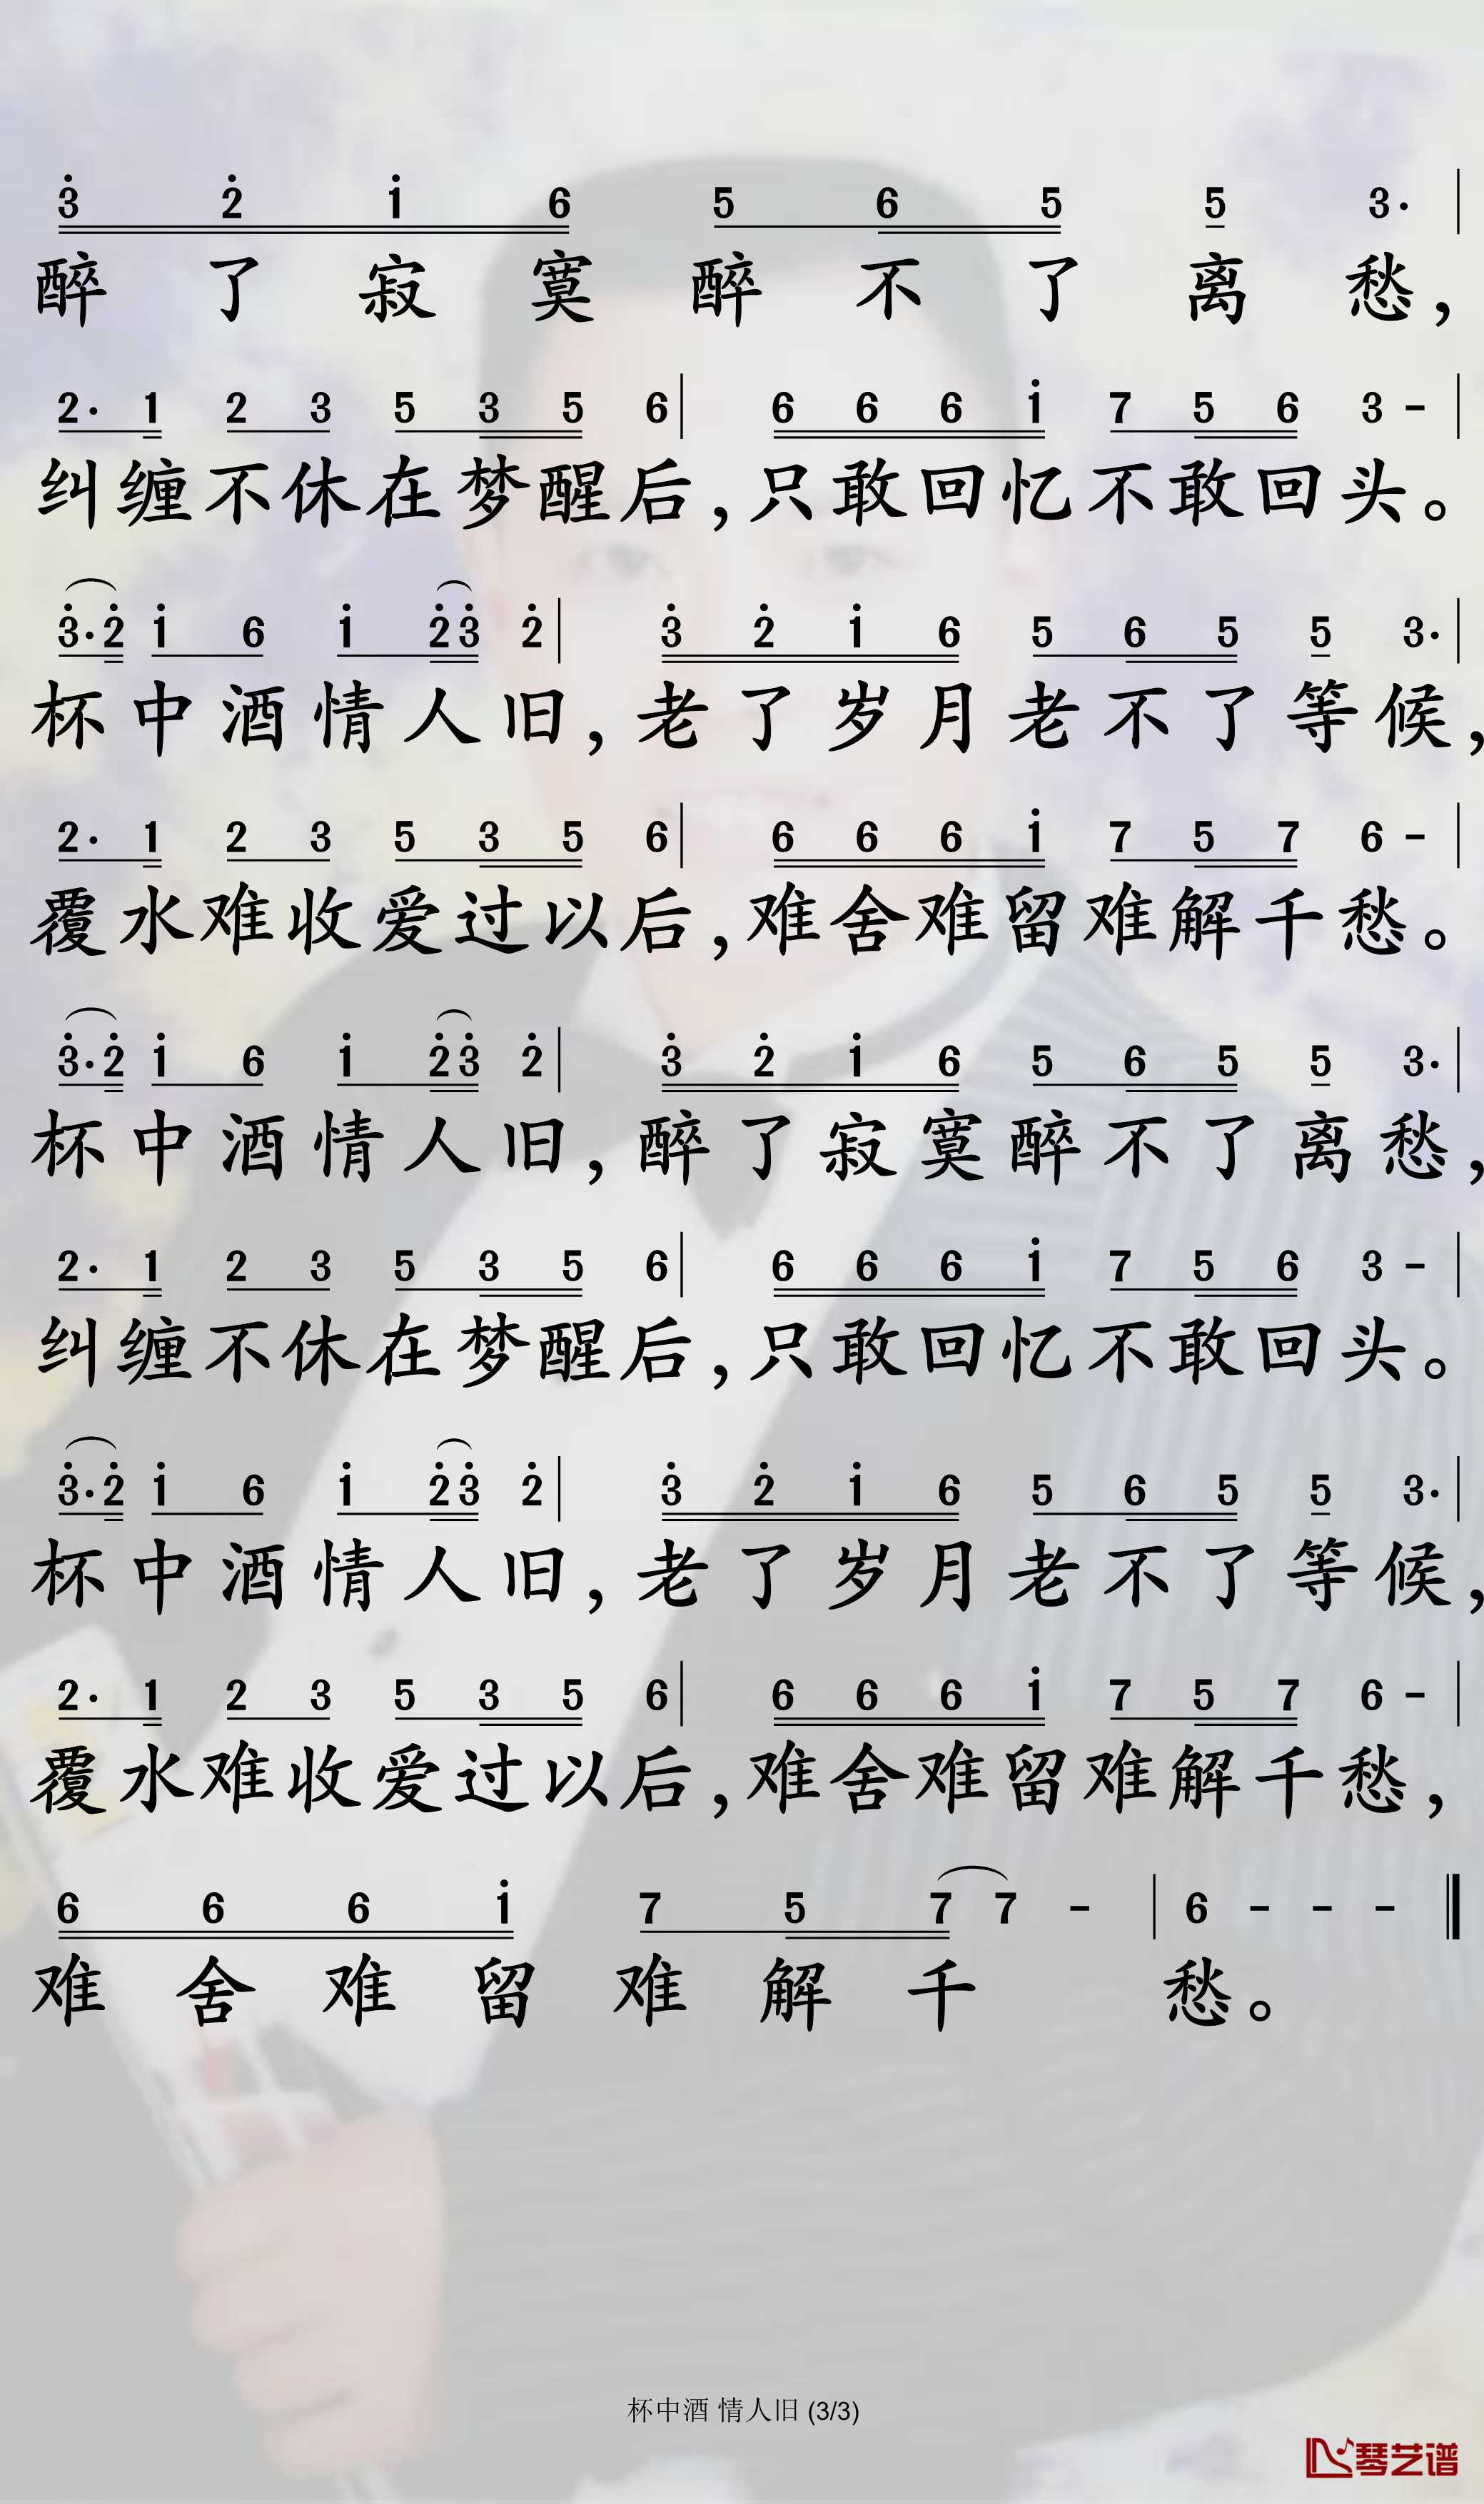 3̇ 2̇ 1̇ 6 5 6 5 5 3· |
醉了寂寞醉不了离愁，
2· 1 2 3 5 3 5 6 | 6 6 6 1̇ 7 5 6 3 - |
纠缠不休在梦醒后，只敢回忆不敢回头。
3̇· 2̇ 1̇ 6 1̇ 2̇ 3̇ 2̇ | 3̇ 2̇ 1̇ 6 5 6 5 5 3· |
杯中酒情人旧，老了岁月老不了等候，
2· 1 2 3 5 3 5 6 | 6 6 6 1̇ 7 5 7 6 - |
覆水难收爱过以后，难舍难留难解千愁。
3̇· 2̇ 1̇ 6 1̇ 2̇ 3̇ 2̇ | 3̇ 2̇ 1̇ 6 5 6 5 5 3· |
杯中酒情人旧，醉了寂寞醉不了离愁，
2· 1 2 3 5 3 5 6 | 6 6 6 1̇ 7 5 6 3 - |
纠缠不休在梦醒后，只敢回忆不敢回头。
3̇· 2̇ 1̇ 6 1̇ 2̇ 3̇ 2̇ | 3̇ 2̇ 1̇ 6 5 6 5 5 3· |
杯中酒情人旧，老了岁月老不了等候，
2· 1 2 3 5 3 5 6 | 6 6 6 1̇ 7 5 7 6 - |
覆水难收爱过以后，难舍难留难解千愁，
6 6 6 1̇ 7 5 7 7 - | 6 - - - ‖
难舍难留难解千愁。
杯中酒 情人旧 (3/3)
琴艺谱